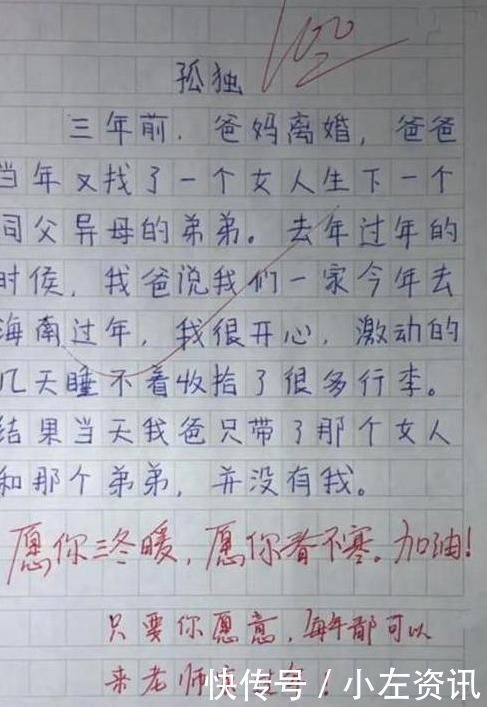 100
孤独
三年前，爸妈离婚，爸爸
当年又找了一个女人生下一个
同父异母的弟弟。去年过年的
时侯，我爸说我们一家今年去
海南过年，我很开心，激动的
几天睡不着收拾了很多行李。
结果当天我爸只带了那个女人
和那个弟弟，并没有我。
愿你三冬暖，愿你春不寒。加油！
只要你愿意，每年都可以
来老师
快传号 / 小左资讯